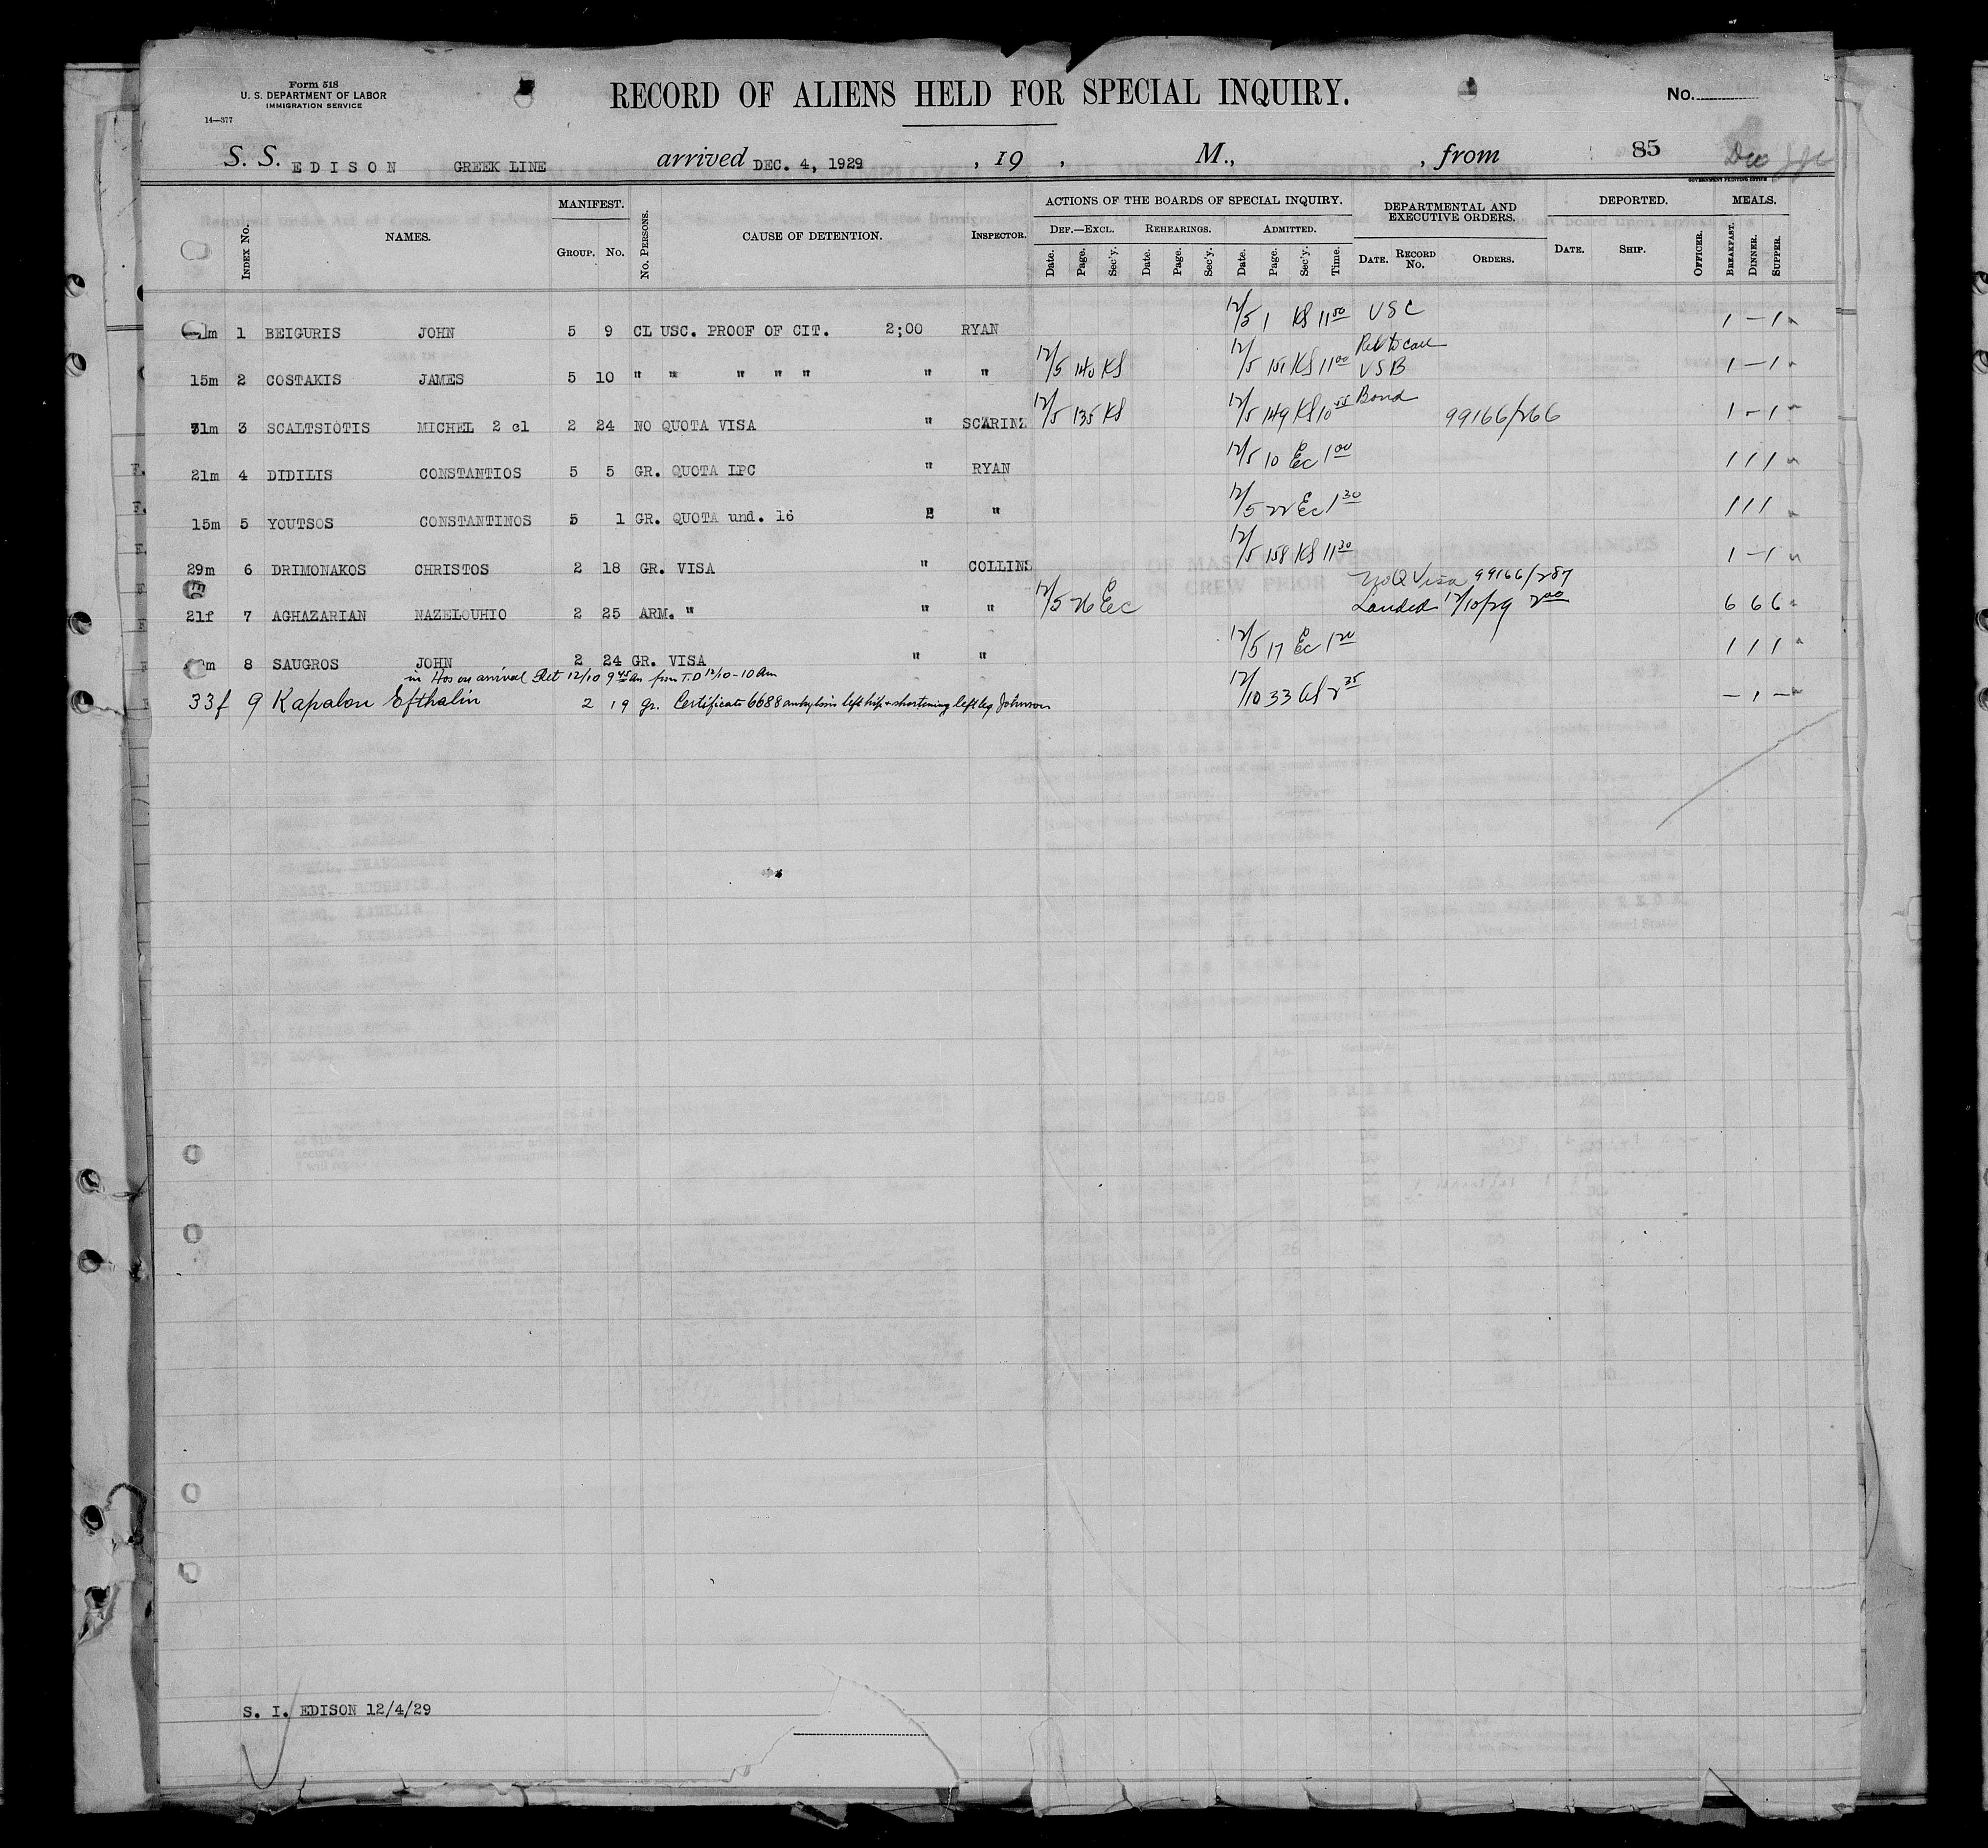 Form 518
U. S. DEPARTMENT OF LABOR
IMMIGRATION SERVICE
14—377
RECORD OF ALIENS HELD FOR SPECIAL INQUIRY.
No.
S. S. EDISON GREEK LINE arrived DEC. 4, 1929, 19 , M., , from 85 Dec
GOVERNMENT PRINTING OFFICE
Index No. NAMES. MANIFEST. Group. No. No. Persons. CAUSE OF DETENTION. Inspector. ACTIONS OF THE BOARDS OF SPECIAL INQUIRY. DEPARTMENTAL AND EXECUTIVE ORDERS. DEPORTED. MEALS.
Def.—Excl. Rehearings. Admitted.
Date. Page. Sec'y. Date. Page. Sec'y. Date. Page. Sec'y. Time. Date. Record No. Orders. Date. Ship. Officer. Breakfast. Dinner. Supper.
m 1 BEIGURIS JOHN 5 9 CL USC. PROOF OF CIT. 2;00 RYAN 12/5 1 KS 11 50 USC 1 — 1
Rel to call
15m 2 COSTAKIS JAMES 5 10 " " " " " " " 12/5 140 KS 12/5 151 KS 11 00 USB 1 — 1
31m 3 SCALTSIOTIS MICHEL 2 cl 2 24 NO QUOTA VISA " SCARINZ 12/5 135 KS 12/5 149 KS 10 55 Bond 99166/266 1 - 1
21m 4 DIDILIS CONSTANTIOS 5 5 GR. QUOTA IPC " RYAN 12/5 10 Ec 1 00 1 1 1
15m 5 YOUTSOS CONSTANTINOS 5 1 GR. QUOTA und. 16 " " 12/5 22 Ec 1 30 1 1 1
29m 6 DRIMONAKOS CHRISTOS 2 18 GR. VISA " COLLINS 12/5 158 KS 11 30 1 - 1
No Q Visa 99166/287
21f 7 AGHAZARIAN NAZELOUHIO 2 25 ARM. " " " 12/5 26 Ec Landed 12/10/29 2 00 6 6 6
m 8 SAUGROS JOHN 2 24 GR. VISA " " 12/5 17 Ec 1 20 1 1 1
in Hos on arrival Ret 12/10 9 45 am from T.D 12/10 - 10 am
33f 9 Kapalou Efthalin 2 19 gr. Certificate 6688 ankylosis left hip & shortening left leg Johnson 12/10 33 2 35 — 1 —
S. I. EDISON 12/4/29